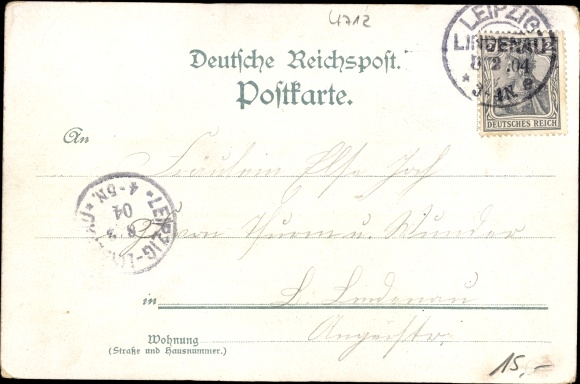 4712
LEIPZIG-
LINDENAU
8 2 04
3-4N. e
2
DEUTSCHES REICH
Deutsche Reichspost.
Postkarte.
An
Fräulein Else Joch
Thurm u. Wunder
LEIPZIG-LINDENAU
8 2
04
4-5N.
in L. Lindenau
Angerstr.
Wohnung
(Straße und Hausnummer.)
15,-